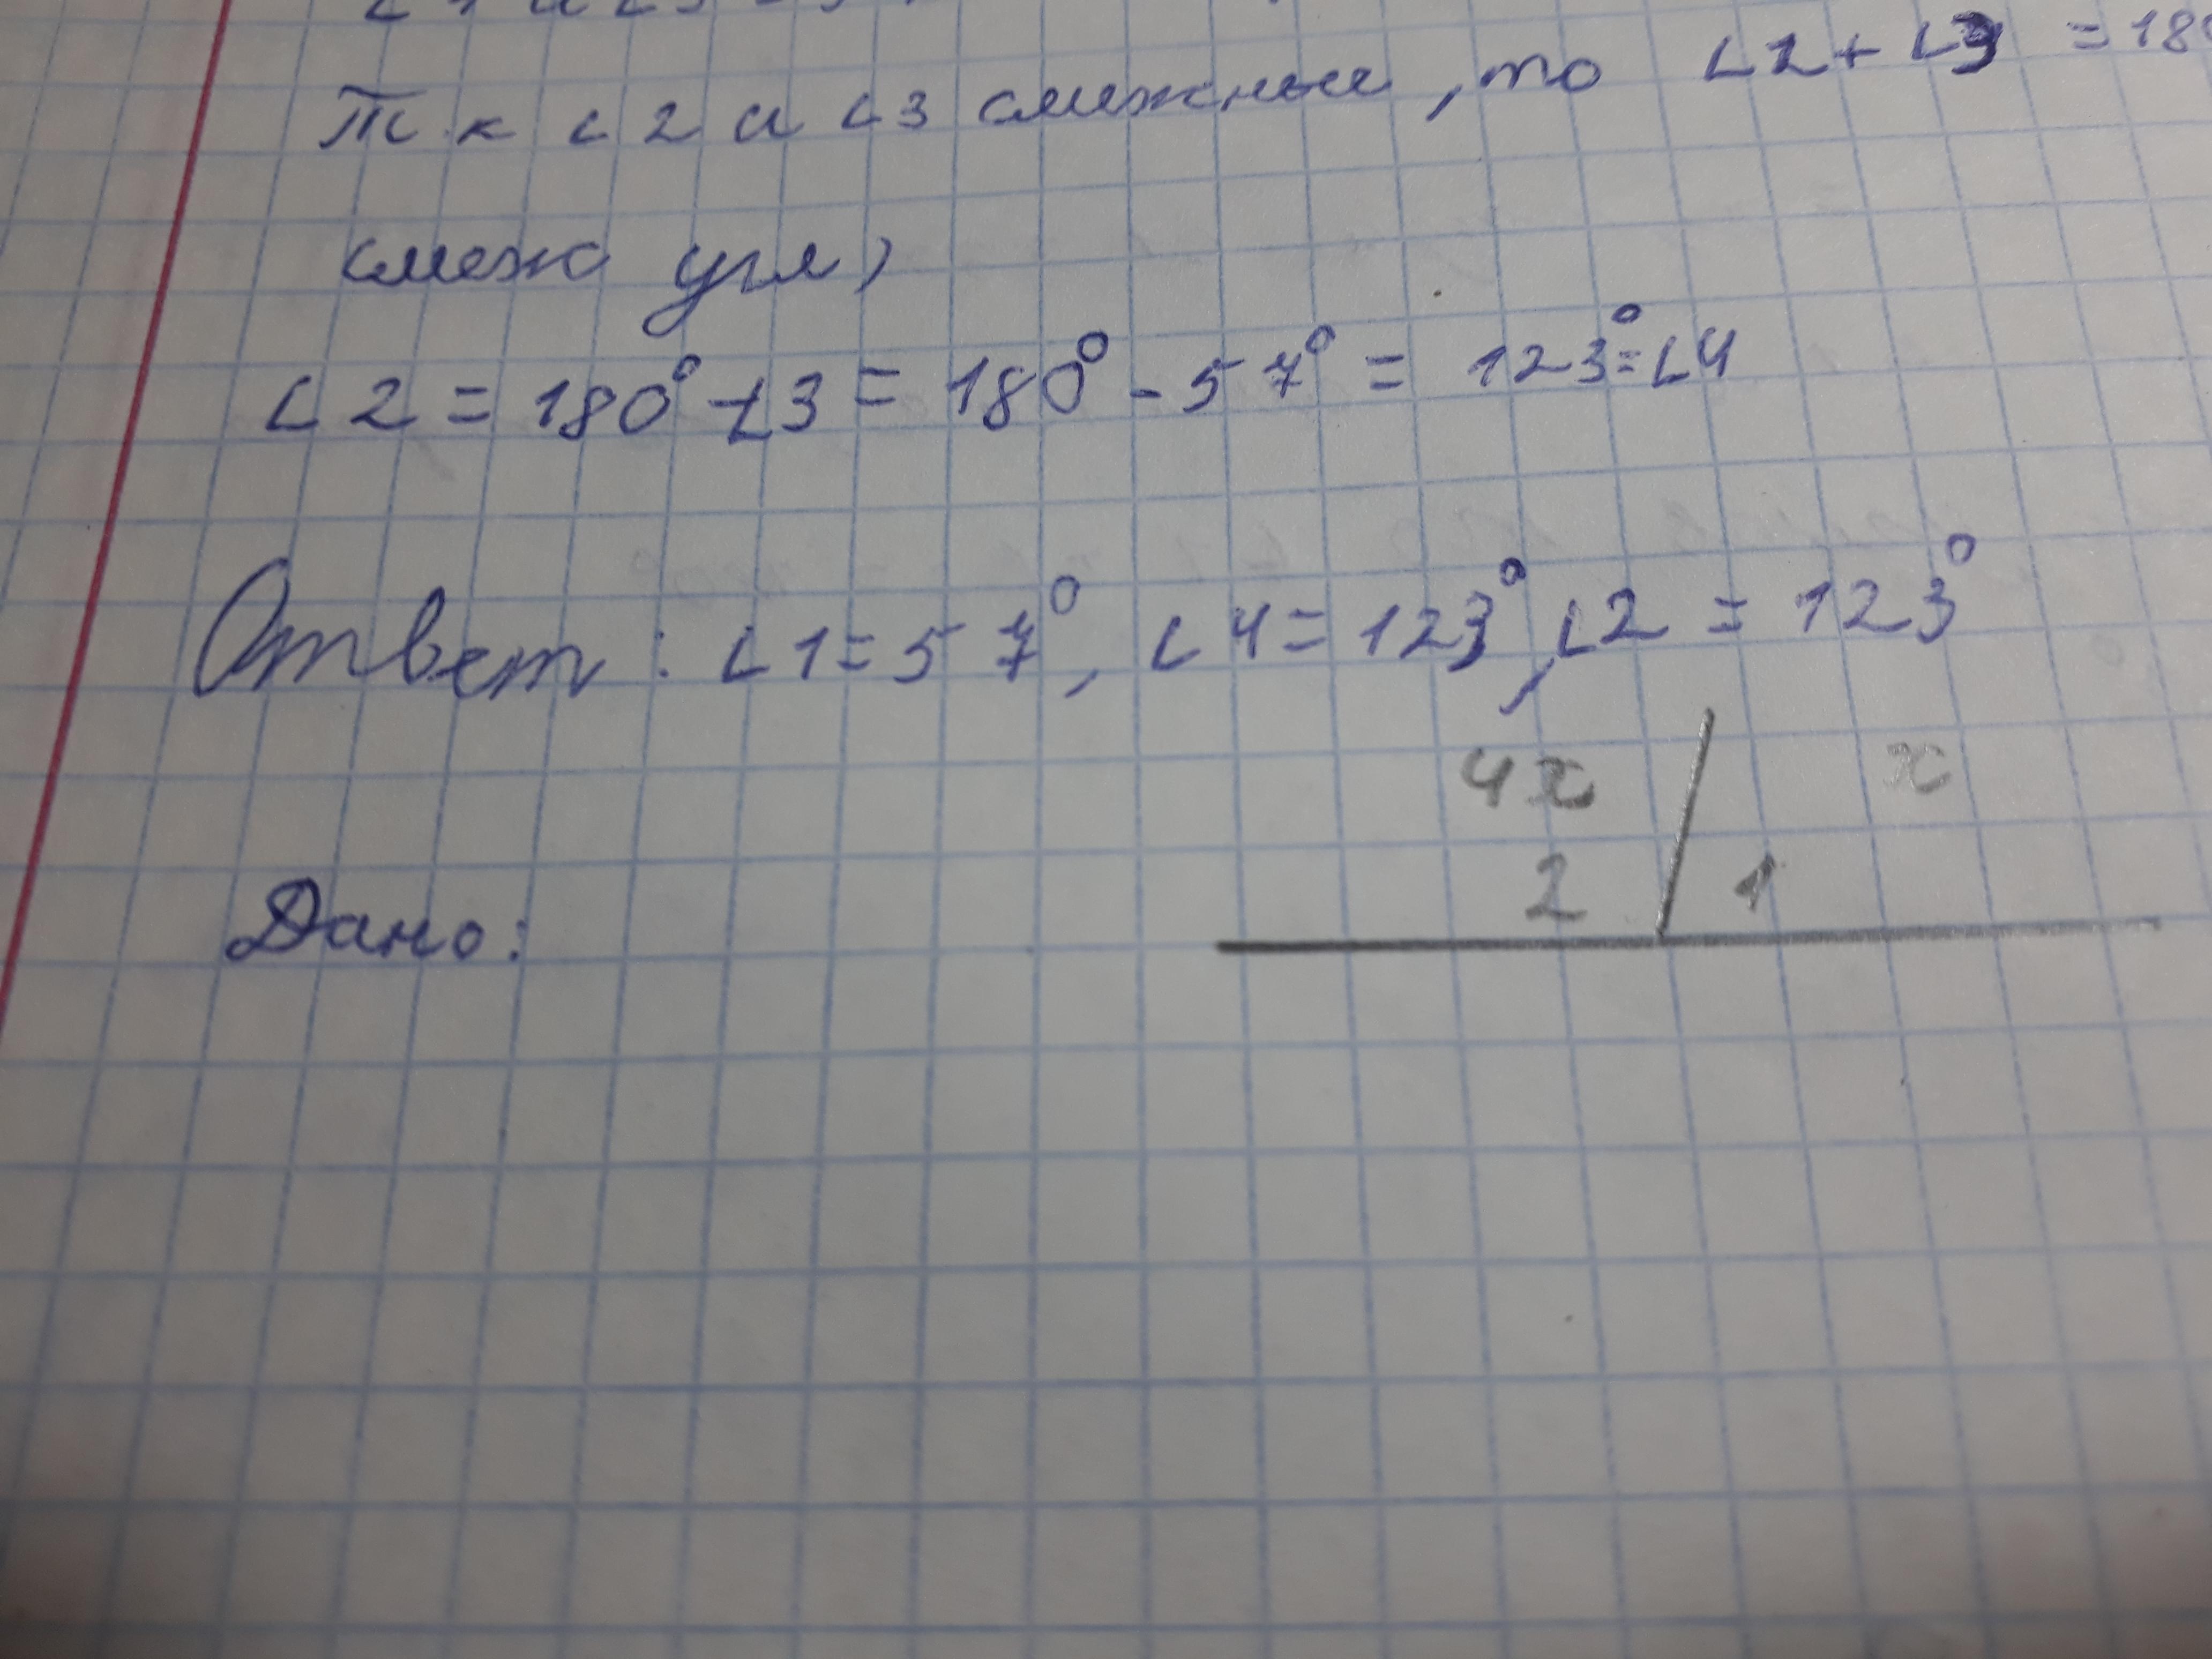 Т.к ∠2 и ∠3 смежные, то ∠2+∠3 =180
смеж угл)
∠2 = 180° - ∠3 = 180° - 57° = 123° = ∠4
Ответ: ∠1=57°, ∠4=123°, ∠2 = 123°
4x x
2 1
Дано: